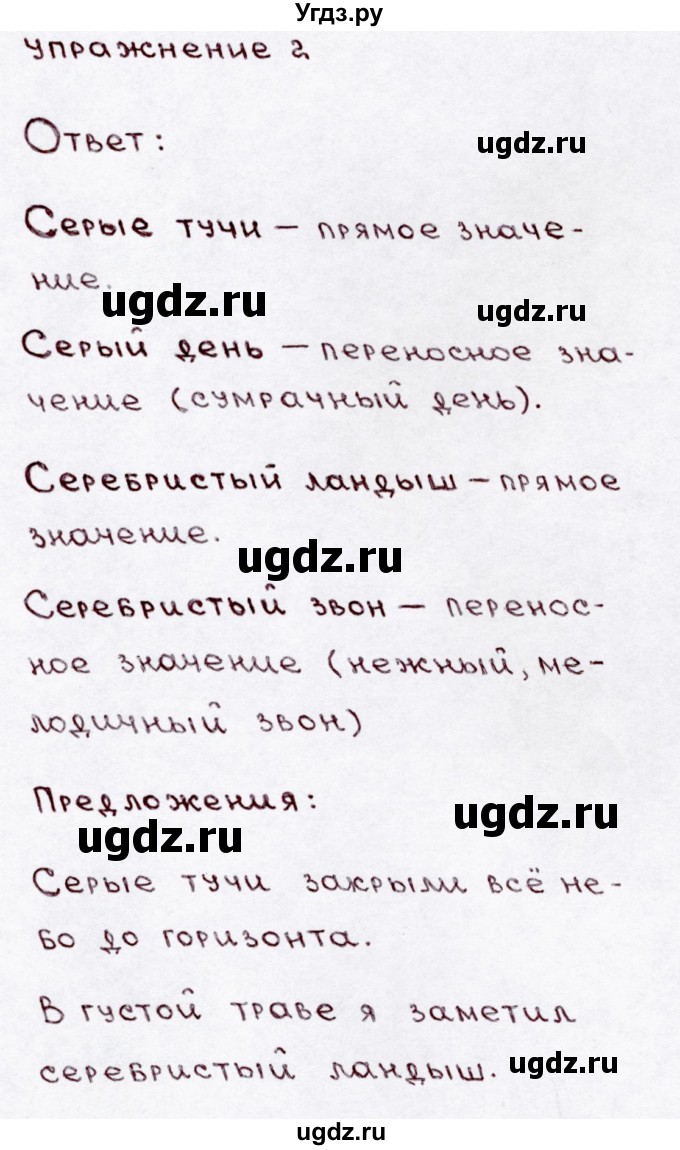 Угдз.ру
Упражнение 2
Ответ: ugdz.ru
Серые тучи – прямое значе-
ние.
ugdz.ru ugdz.ru
Серый день – переносное зна-
чение (сумрачный день).
Серебристый ландыш – прямое
значение.
ugdz.ru
Серебристый звон – перенос-
ное значение (нежный, ме-
лодичный звон)
Предложения:
ugdz.ru ugdz.ru
Серые тучи закрыли всё не-
бо до горизонта.
В густой траве я заметил
серебристый ландыш. ugdz.ru
ugdz.ru